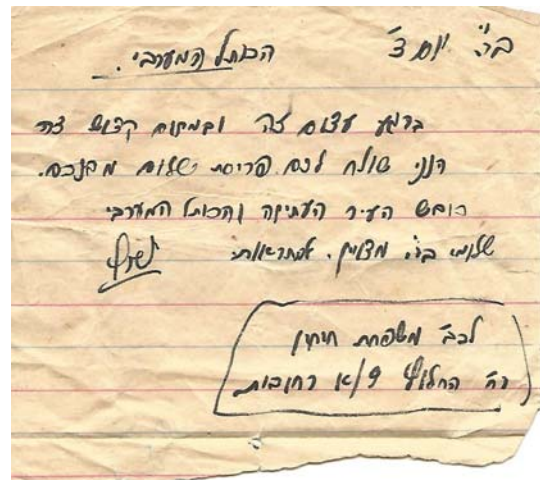 ב"ה. יום ד' הכותל המערבי.
ברגע עצום זה ובמקום קדוש זה
הנני שולח לכם פריסת שלום מבנכם.
כובש העיר העתיקה והכותל המערבי
שלומי ב"ה מצוין. להתראות
לכב' משפחת
רח' החלוץ 9/א רחובות